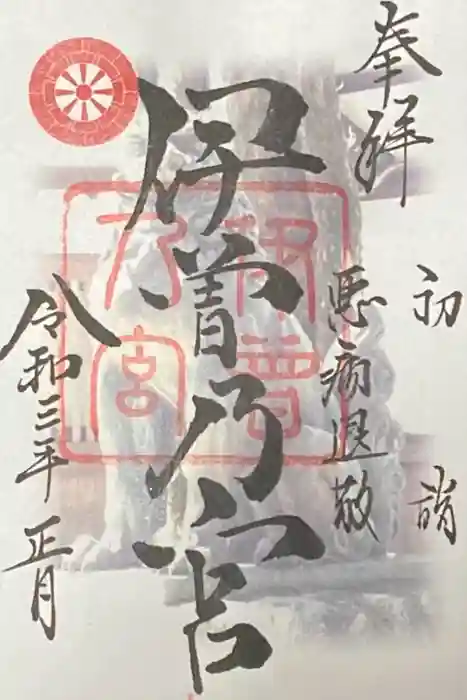 奉拝
初詣
悪病退散
伊曽乃宮
伊曽
乃宮
令和三年 正月